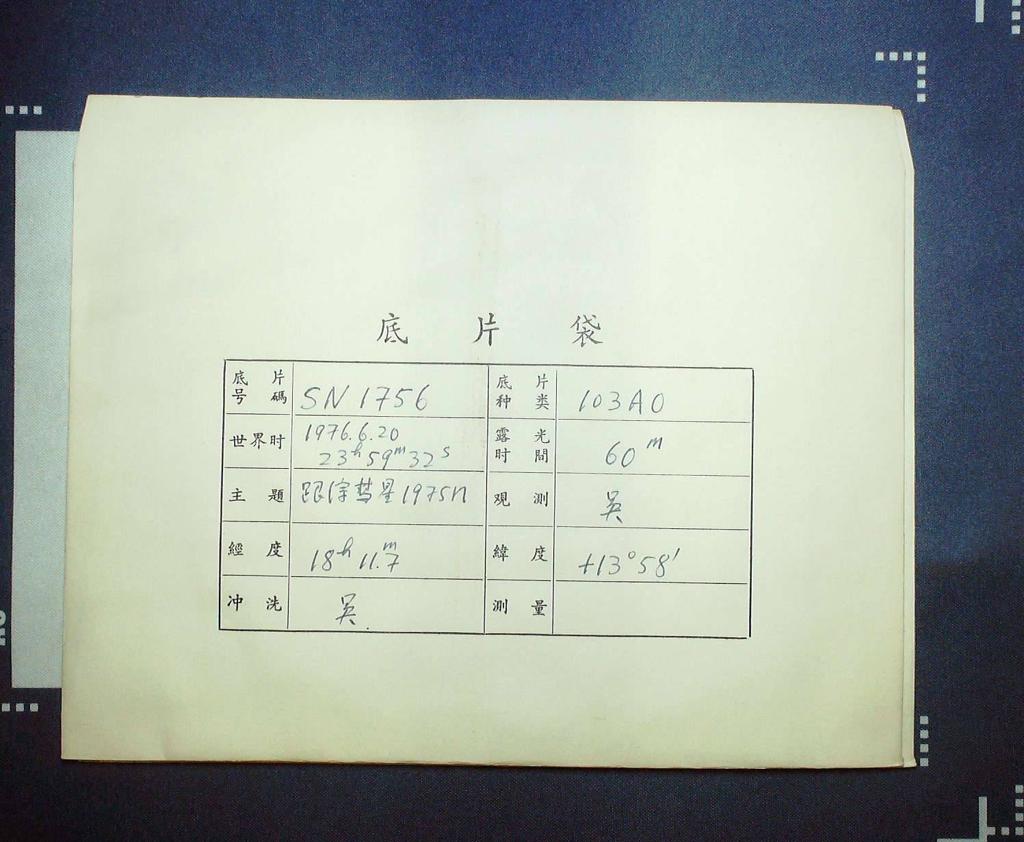 底片袋
底片号碼 SN 1756 底片种类 103AO
世界时 1976.6.20 23h59m32s 露光时間 60m
主題 跟踪彗星1975n 观測 吴
經度 18h 11.m7 緯度 +13°58'
冲洗 吴. 測量